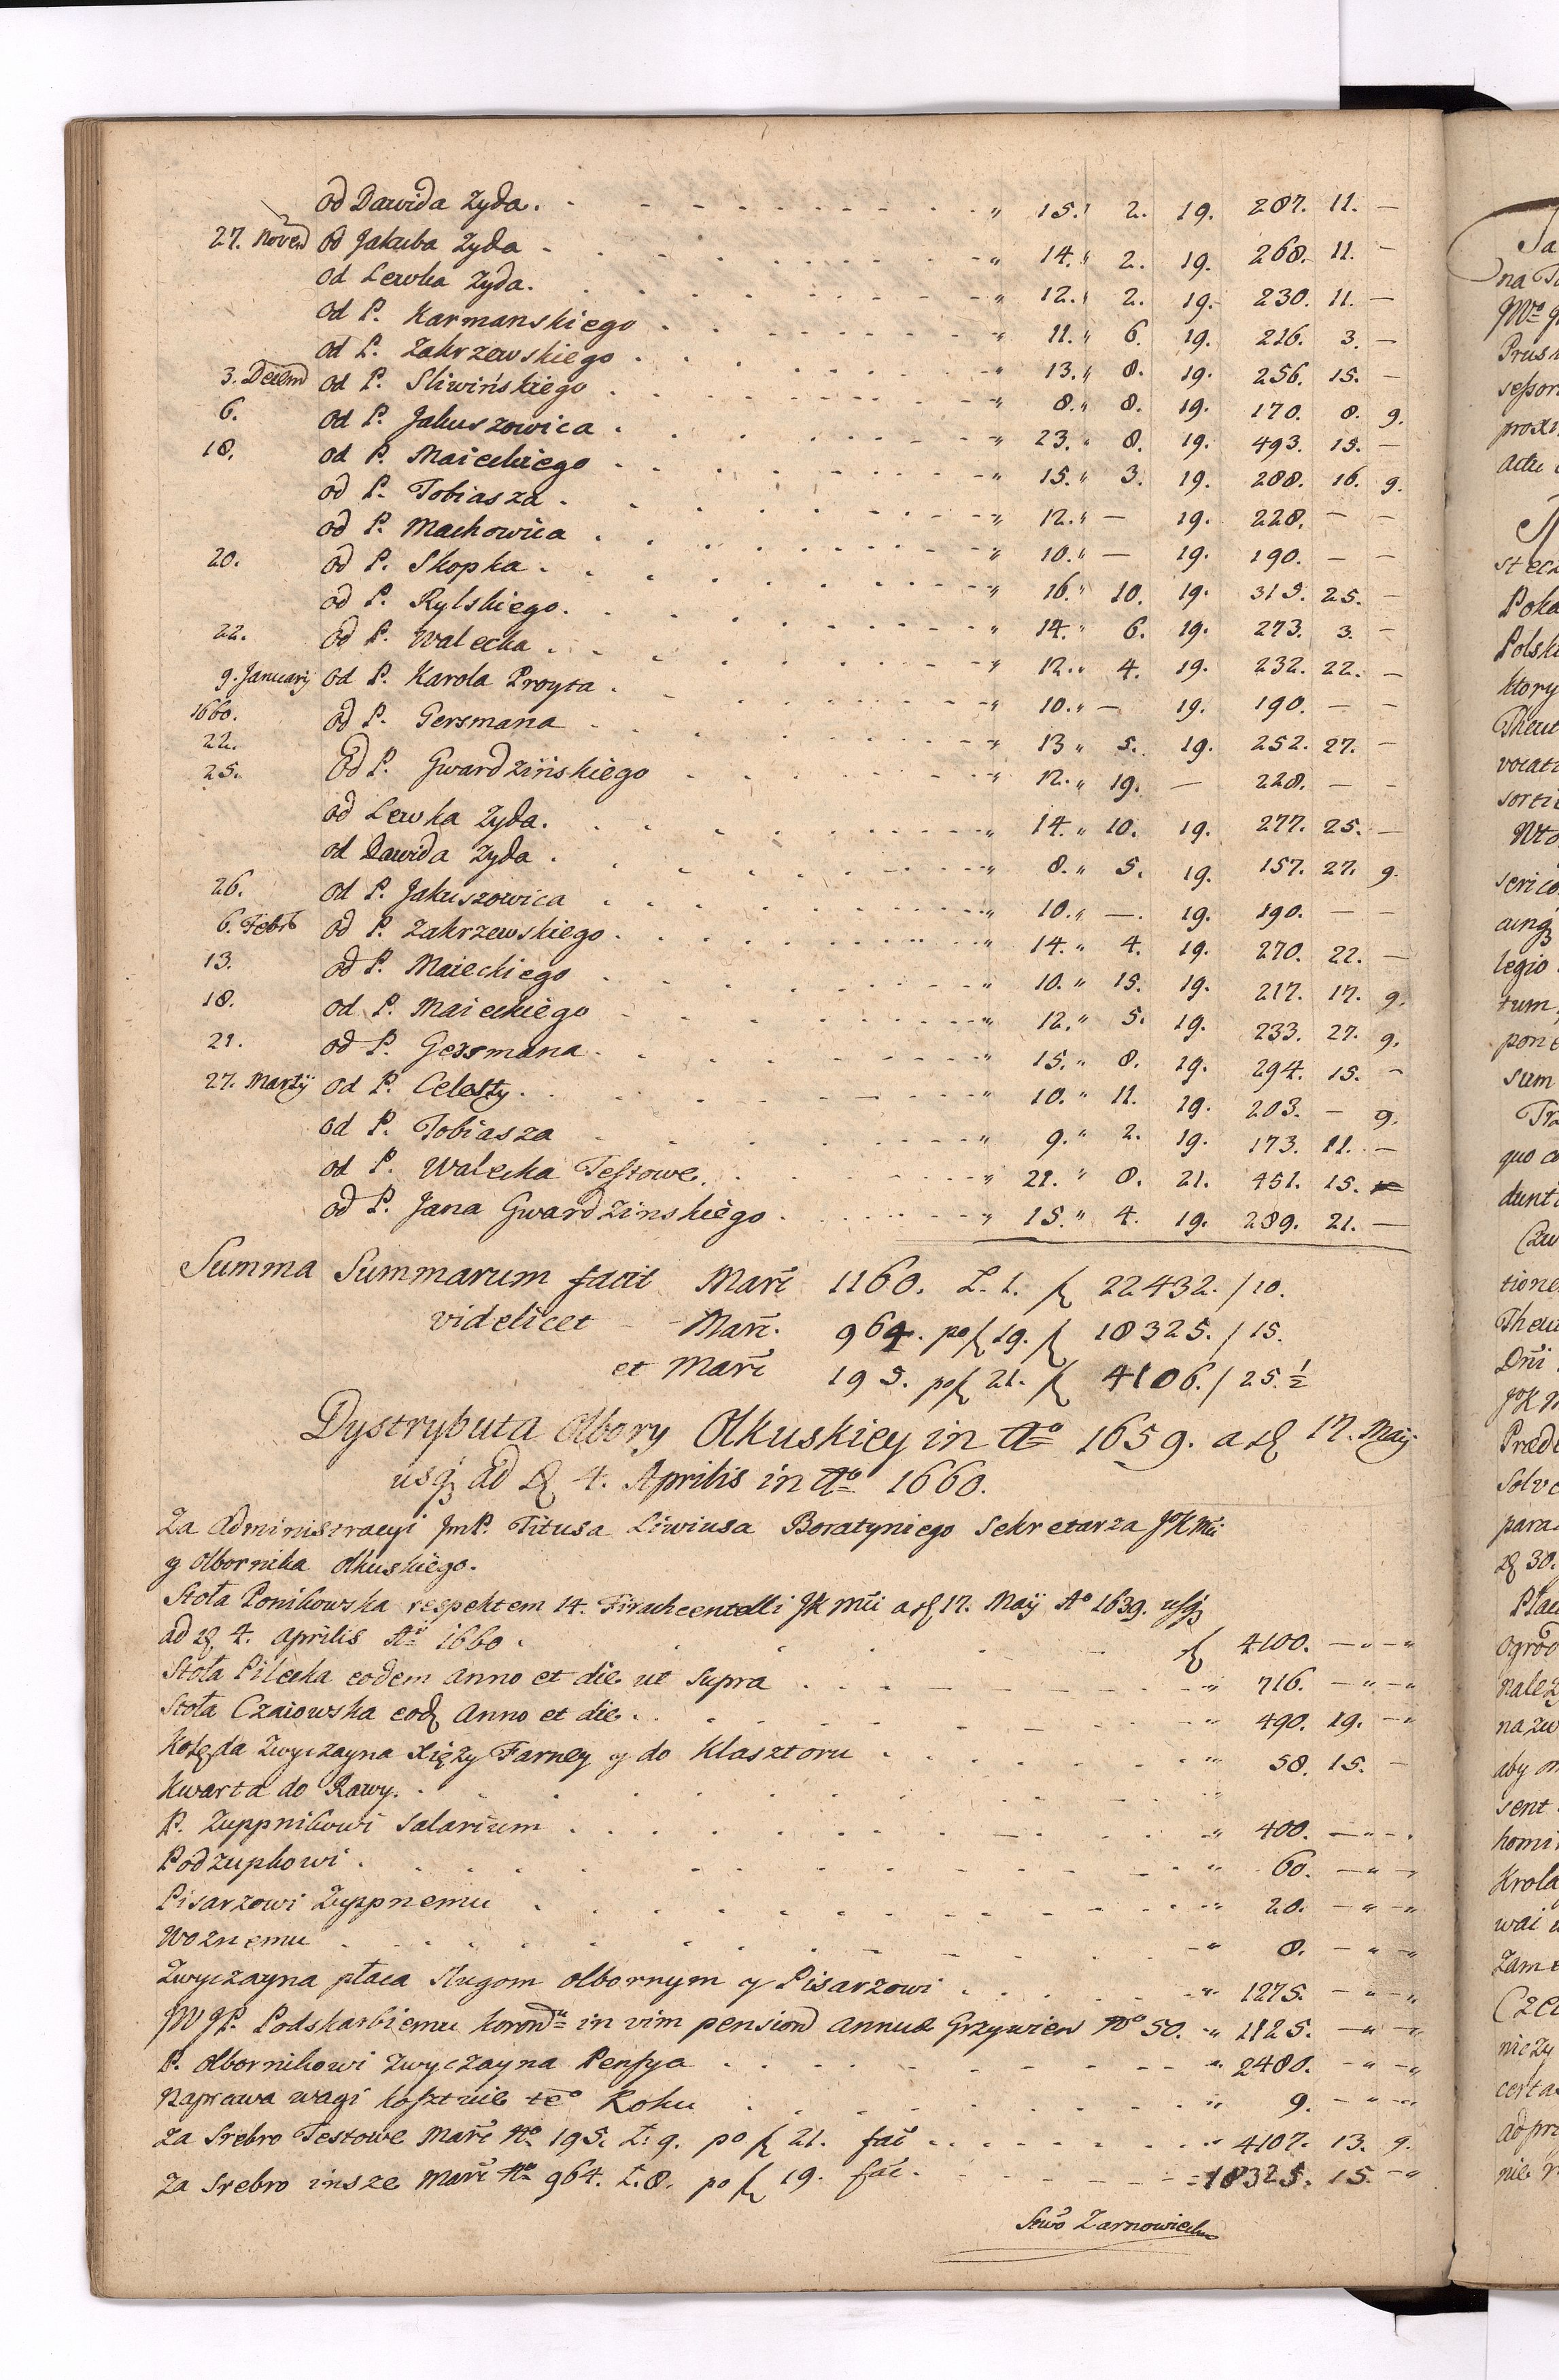 od Dawida Zyda. " 15." 2. 19. 287. 11. —
27. Novem od Jakuba Zyda " 14." 2. 19. 268. 11. —
od Lewka Zyda. " 12." 2. 19. 230. 11. —
od P. Karmanskiego " 11." 6. 19. 216. 3. —
od P. Zakrzewskiego " 13." 8. 19. 256. 15. —
3. Decem od P. Sliwińskiego " 8." 8. 19. 170. 8. 9.
6. od P. Jakuszowica " 23." 8. 19. 493. 15. —
18. od P. Maieckiego " 15." 3. 19. 288. 16. 9.
od P. Tobiasza " 12." — 19. 228. — —
od P. Machowica " 10." — 19. 190. — —
20. od P. Skopka " 16." 10. 19. 315. 25. —
od P. Rylskiego " 14." 6. 19. 273. 3. —
22. od P. Walecka " 12." 4. 19. 232. 22. —
9. January od P. Karola Proyta " 10." — 19. 190. — —
1660.
22. od P. Gersmana " 13" 5. 19. 252. 27. —
25. Od P. Gwardzińskiego " 12." 19. — 228. — —
od Lewka Zyda. " 14." 10. 19. 277. 25. —
od Dawida Zyda " 8." 5. 19. 157. 27. 9.
26. od P. Jakuszowica " 10." — 19. 190. — —
6. Febr od P. Zakrzewskiego " 14." 4. 19. 270. 22. —
13. od P. Maieckiego " 10." 15. 19. 217. 17. 9.
18. od P. Maieckiego " 12." 5. 19. 233. 27. 9.
21. od P. Gersmana " 15." 8. 19. 294. 15. —
27. Martij od P. Celesty " 10." 11. 19. 203. — 9.
od P. Tobiasza " 9." 2. 19. 173. 11. —
od P. Walecka Testowe. " 21." 8. 21. 451. 15.
od P. Jana Gwardzinskiego " 15." 4. 19. 289. 21. —
Summa Summarum facit Marc 1160. L. 1. f 22432. / 10.
videlicet - Marc. 964. po f 19. f 18325. / 15.
et Marc 195. po f 21. f 4106. / 25. ½
Dystrybuta Olbory Olkuskiey in Aº 1659. a d 17. Maij
usqz ad d 4. Aprilis in Aº 1660.
Za Administracyi JmP. Titusa Liwiusa Boratyniego Sekretarza JoK Mci
y Olbornika Olkuskiego.
Stoła Ponikowska respektem 14. JK Mci a d 17. Maij Aº 1639. usqz
ad d 4. Aprilis Aº 1660. f 4100. —"—"
Stoła Pilecka eodem Anno et die ut supra " 716. —"—"
Stoła Czaiowska eod Anno et die " 490. 19. —"
Kolęda Zwyczayna Xięzy Farney y do Klasztoru " 58. 15. —
Kwarta do Rawy. "
P. Zuppnikowi Salarium " 400. —"—
Podzupkowi " 60. —"—
Pisarzowi Zuppnemu " 20. —"—"
Woznemu " 8. —"—
Zwyczayna płaca Sługom olbornym y Pisarzowi " 1275. —"—"
JW JP. Podskarbiemu Koron in vim pension annuae Grzywien Nº 50. " 1125. —"—
P. Olbornikowi Zwyczayna Pensya " 2480. —"—"
Naprawa wagi kosztuie teº Roku " 9. —"—"
Za Srebro Testowe Marc Nº 195. L. 9. po f 21. fac " 4107. 13. 9.
Za Srebro insze Marc Nº 964. L. 8. po f 19. fac. 18325. 15. —"